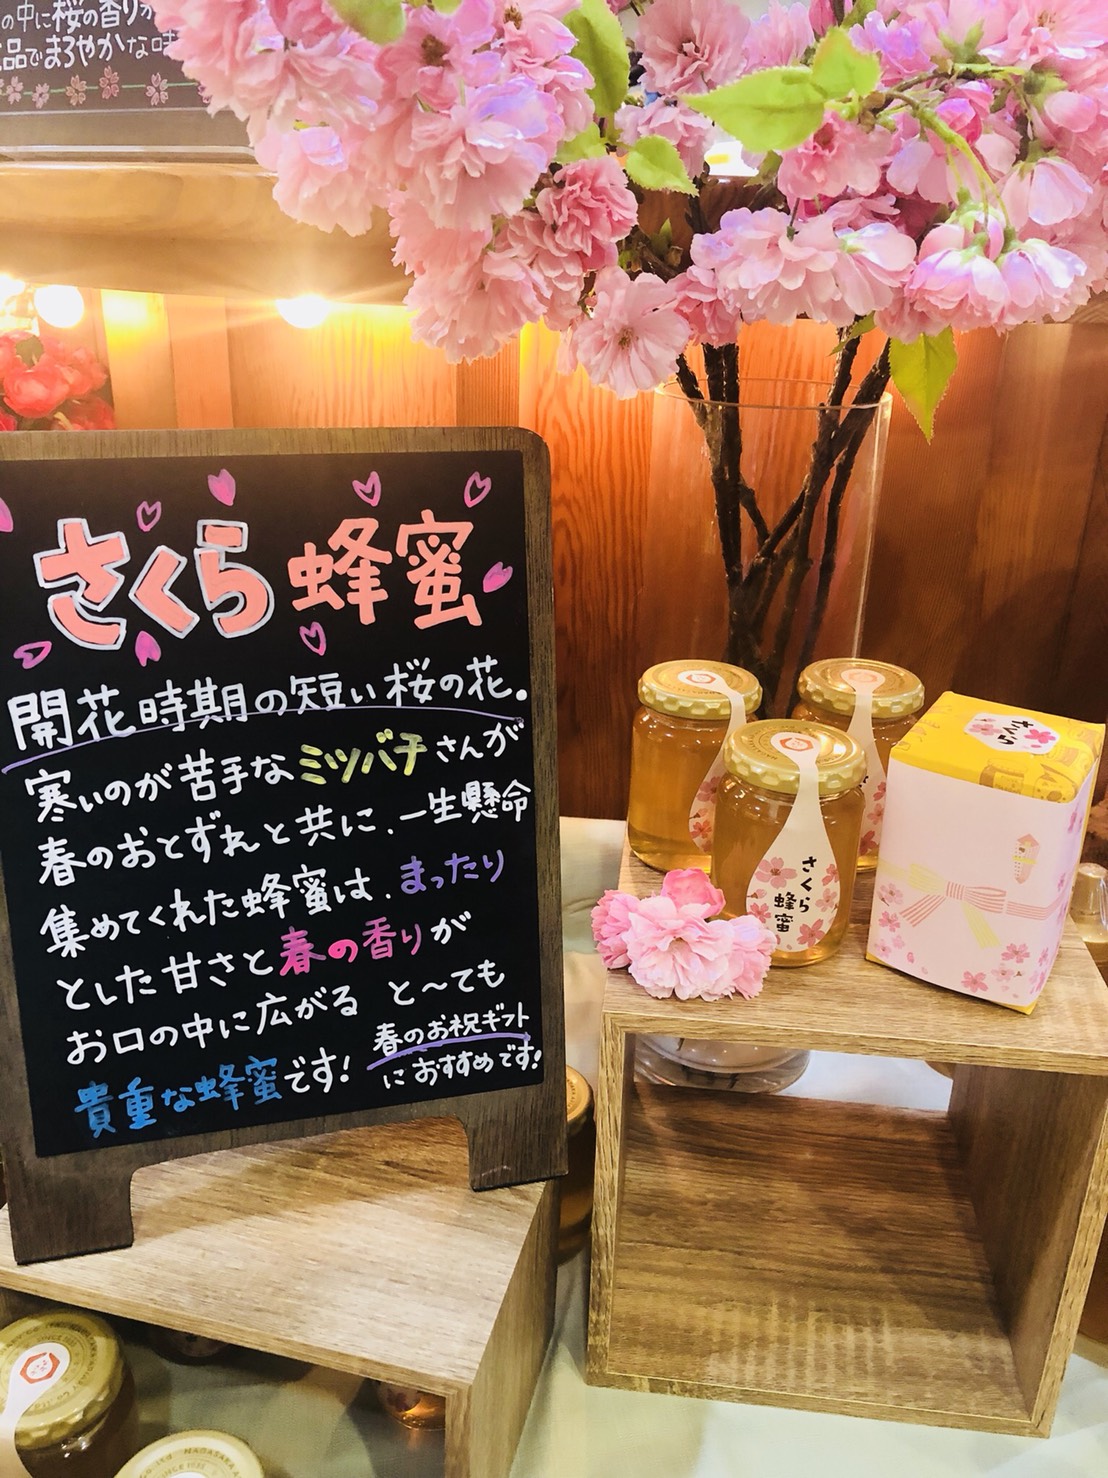 の中に桜の香りが
品でまろやかな味
さくら蜂蜜
開花時期の短い桜の花。
寒いのが苦手なミツバチさんが
春のおとずれと共に、一生懸命
集めてくれた蜂蜜は、まったり
とした甘さと春の香りが
お口の中に広がる と〜ても
貴重な蜂蜜です!
春のお祝ギフト
におすすめです!
さくら
蜂蜜
さくら